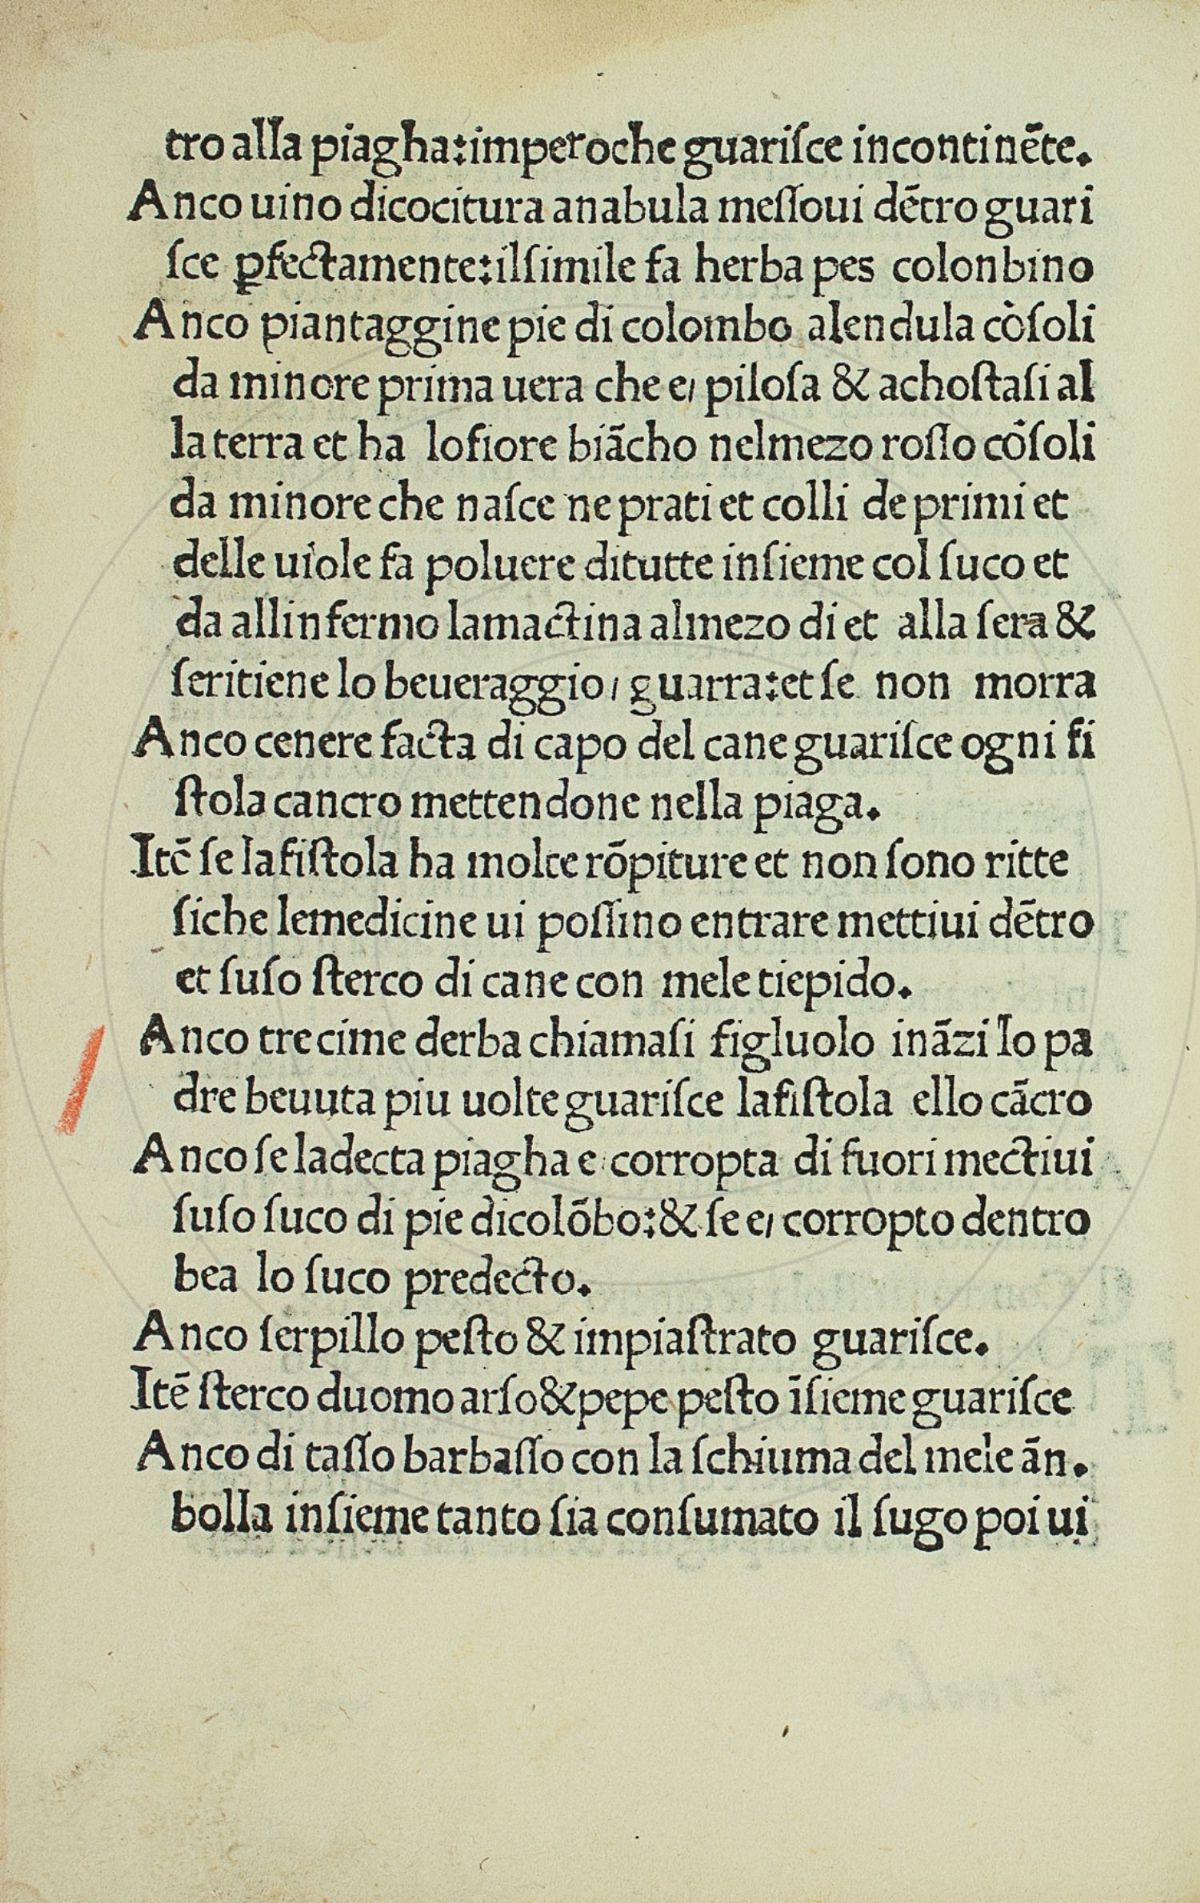 tro alla piagha:imperoche guariſce incontinēte.
Anco uino dicocitura anabula meſſoui dētro guari
ſce ꝑfectamente:ilſimile fa herba pes colonbino
Anco piantaggine pie di colombo alendula cōſoli
da minore prima uera che e/ piloſa & achoſtaſi al
la terra et ha lofiore biācho nelmezo roſſo cōſoli
da minore che naſce ne prati et colli de primi et
delle uiole fa poluere ditutte inſieme col ſuco et
da allinfermo lamactina almezo di et alla ſera &
ſeritiene lo beueraggio/ guarra:et ſe non morra
Anco cenere facta di capo del cane guariſce ogni fi
ſtola cancro mettendone nella piaga.
Itē ſe lafiſtola ha molte rōpiture et non ſono ritte
ſiche lemedicine ui poſſino entrare mettiui dētro
et ſuſo ſterco di cane con mele tiepido.
Anco tre cime derba chiamaſi figluolo ināzi lo pa
dre beuuta piu uolte guariſce lafiſtola ello cācro
Anco ſe ladecta piagha e corropta di fuori mectiui
ſuſo ſuco di pie dicolōbo:& ſe e/ corropto dentro
bea lo ſuco predecto.
Anco ſerpillo peſto & impiaſtrato guariſce.
Itē ſterco duomo arſo&pepe peſto īſieme guariſce
Anco di taſſo barbaſſo con la ſchiuma del mele ān.
bolla inſieme tanto ſia conſumato il ſugo poi ui